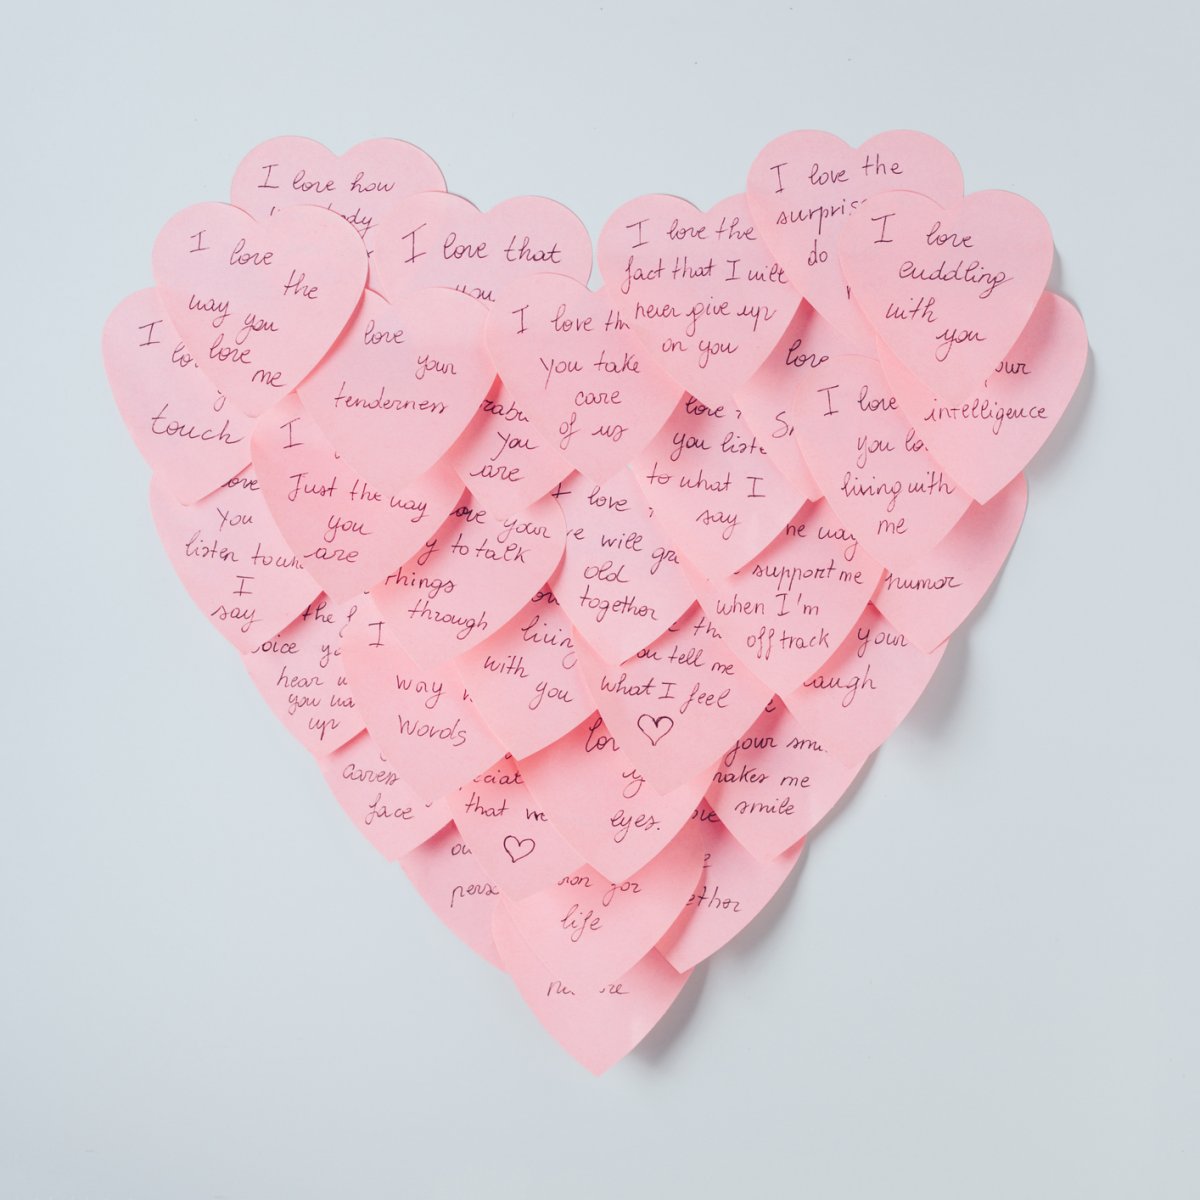 I love how
I love the
surpris
do
I love
the
way you
love
me
I love that
you
I love the
fact that I will
never give up
on you
I love
cuddling
with
you
I
touch
love
your
tenderness
I love th
you take
care
of us
love
your
intelligence
I love
you lo
living with
me
you
are
love
you liste
to what I
say
I
Just the way
you
are
love
you
listen to wh
I
say
love your
y to talk
things
through
I love
we will gr
old
together
he way
support me
when I'm
off track
humor
the
voice yo
hear w
you wa
up
I
way
words
living
with
you
th
you tell me
what I feel
♡
your
laugh
caress
face
eciat
that we
♡
lov
y
eyes.
your smi
makes me
smile
ou
perso
for
life
ether